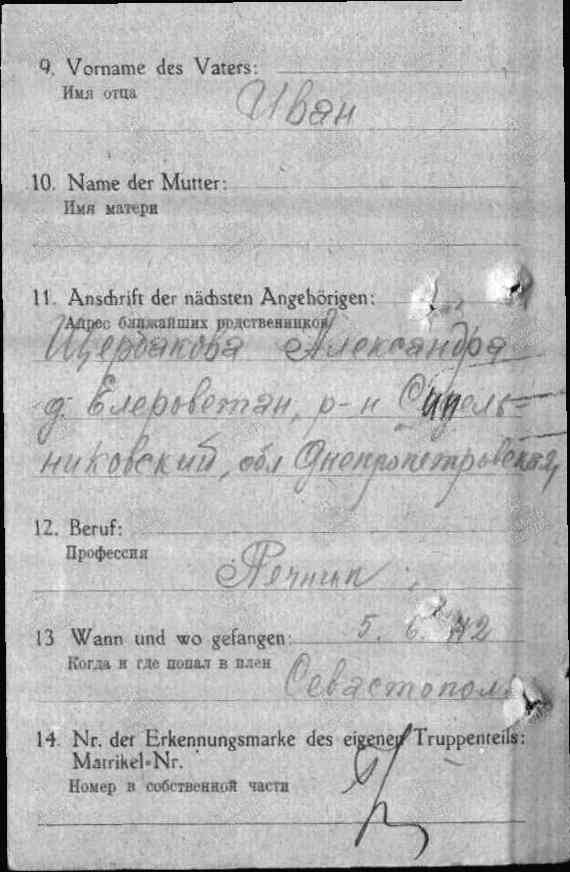 9. Vorname des Vaters:
Имя отца
Иван
10. Name der Mutter:
Имя матери
11. Anschrift der nächsten Angehörigen:
Адрес ближайших родственников
Щербакова Александра
д. Елероветан, р-н Синель-
никовский, обл Днепропетровская,
12. Beruf:
Профессия
13 Wann und wo gefangen: 5. 6. 42
Когда и где попал в плен
Севастопол
14. Nr. der Erkennungsmarke des eigenen Truppenteils:
Matrikel-Nr.
Номер в собственной части